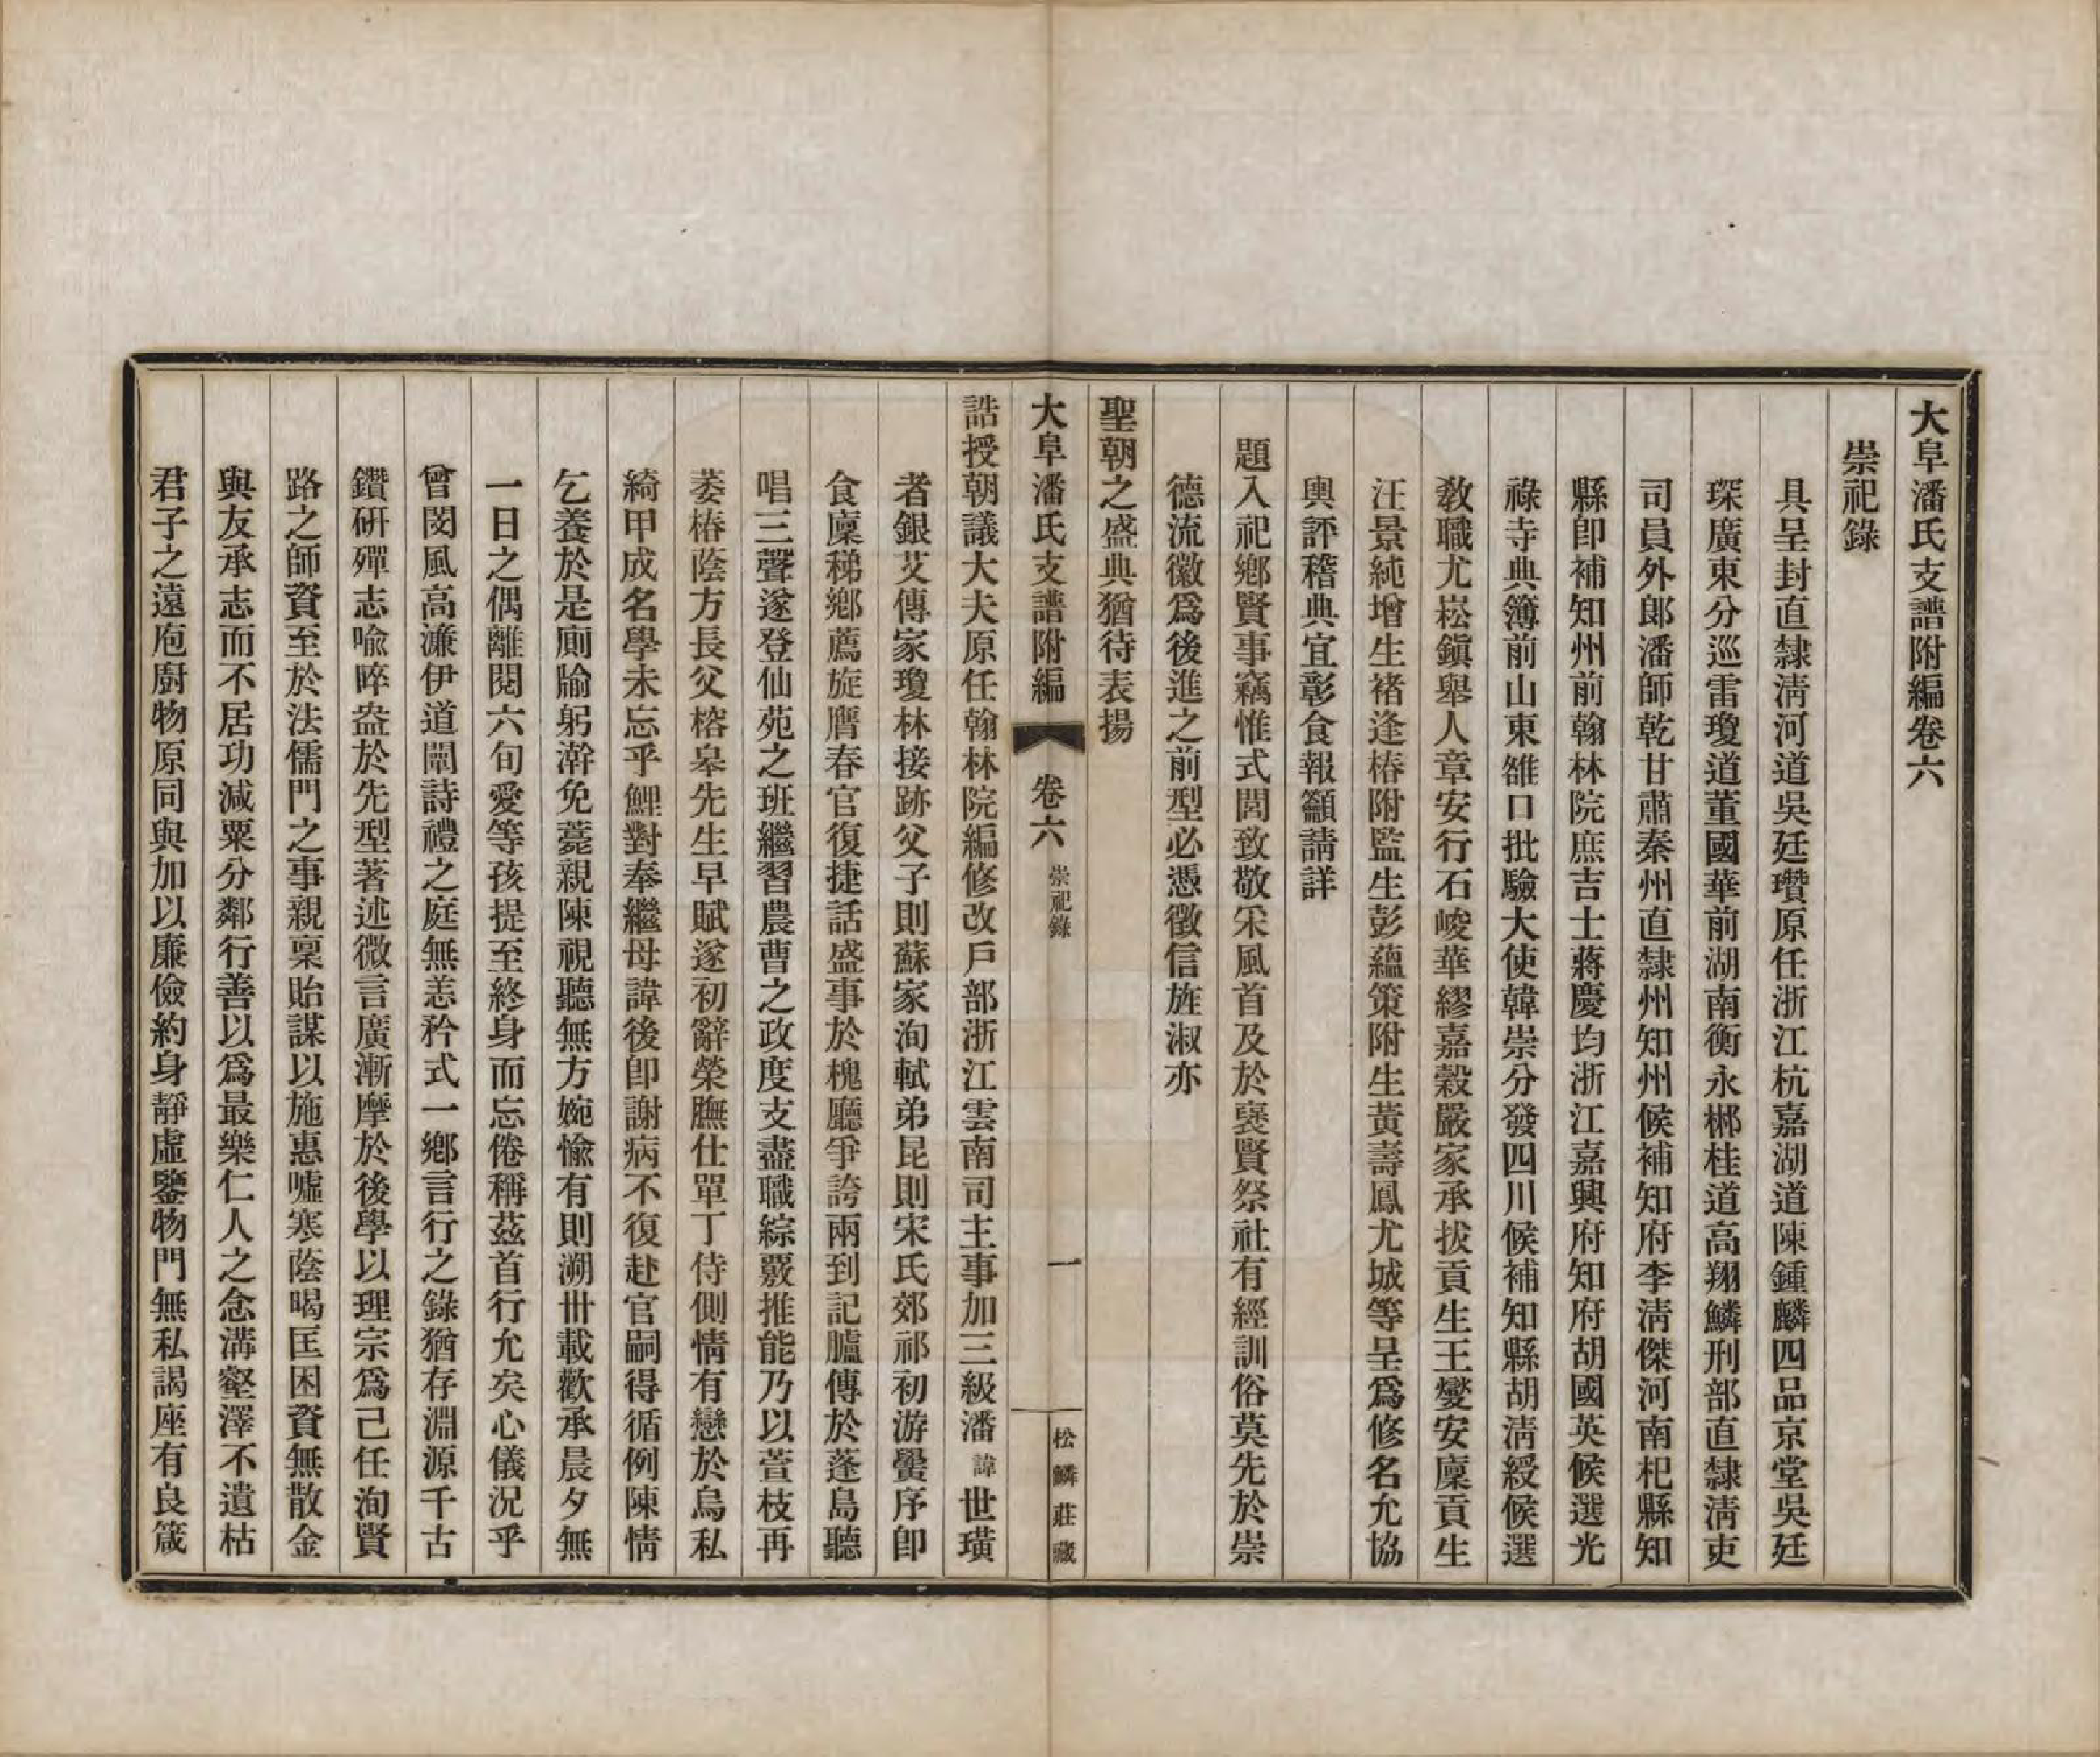 大阜潘氏支譜附編卷六
崇祀錄
具呈封直隸淸河道吳廷瓚原任浙江杭嘉湖道陳鍾麟四品京堂吳廷
琛廣東分巡雷瓊道董國華前湖南衡永郴桂道高翔麟刑部直隸淸吏
司員外郎潘師乾甘肅秦州直隸州知州候補知府李淸傑河南杞縣知
縣卽補知州前翰林院庶吉士蔣慶均浙江嘉興府知府胡國英候選光
祿寺典簿前山東雒口批驗大使韓崇分發四川候補知縣胡淸綬候選
敎職尤崧鎭舉人章安行石峻華繆嘉穀嚴家承拔貢生王燮安廩貢生
汪景純增生褚逢椿附監生彭蘊策附生黃壽鳳尤城等呈爲修名允協
輿評稽典宜彰食報籲請詳
題入祀鄕賢事竊惟式閭致敬采風首及於襃賢祭社有經訓俗莫先於崇
德流徽爲後進之前型必憑徵信旌淑亦
聖朝之盛典猶待表揚
大阜潘氏支譜附編 卷六 崇祀錄 一 松鱗莊藏
誥授朝議大夫原任翰林院編修改戶部浙江雲南司主事加三級潘諱世璜
者銀艾傳家瓊林接跡父子則蘇家洵軾弟昆則宋氏郊祁初游黌序卽
食廩稊鄕薦旋膺春官復捷話盛事於槐廳爭誇兩到記臚傳於蓬島聽
唱三聲遂登仙苑之班繼習農曹之政度支盡職綜覈推能乃以萱枝再
萎椿蔭方長父榕皋先生早賦遂初辭榮膴仕單丁侍側情有戀於烏私
綺甲成名學未忘乎鯉對奉繼母諱後卽謝病不復赴官嗣得循例陳情
乞養於是廁牏躬澣免薧親陳視聽無方婉愉有則溯卅載歡承晨夕無
一日之偶離閱六旬愛等孩提至終身而忘倦稱茲首行允矣心儀況乎
曾閔風高濂伊道闡詩禮之庭無恙矜式一鄕言行之錄猶存淵源千古
鑽硏殫志喩晬盎於先型著述微言廣漸摩於後學以理宗爲己任洵賢
路之師資至於法儒門之事親稟貽謀以施惠噓寒蔭暍匡困資無散金
與友承志而不居功減粟分鄰行善以爲最樂仁人之念溝壑澤不遺枯
君子之遠庖廚物原同與加以廉儉約身靜虛鑒物門無私謁座有良箴